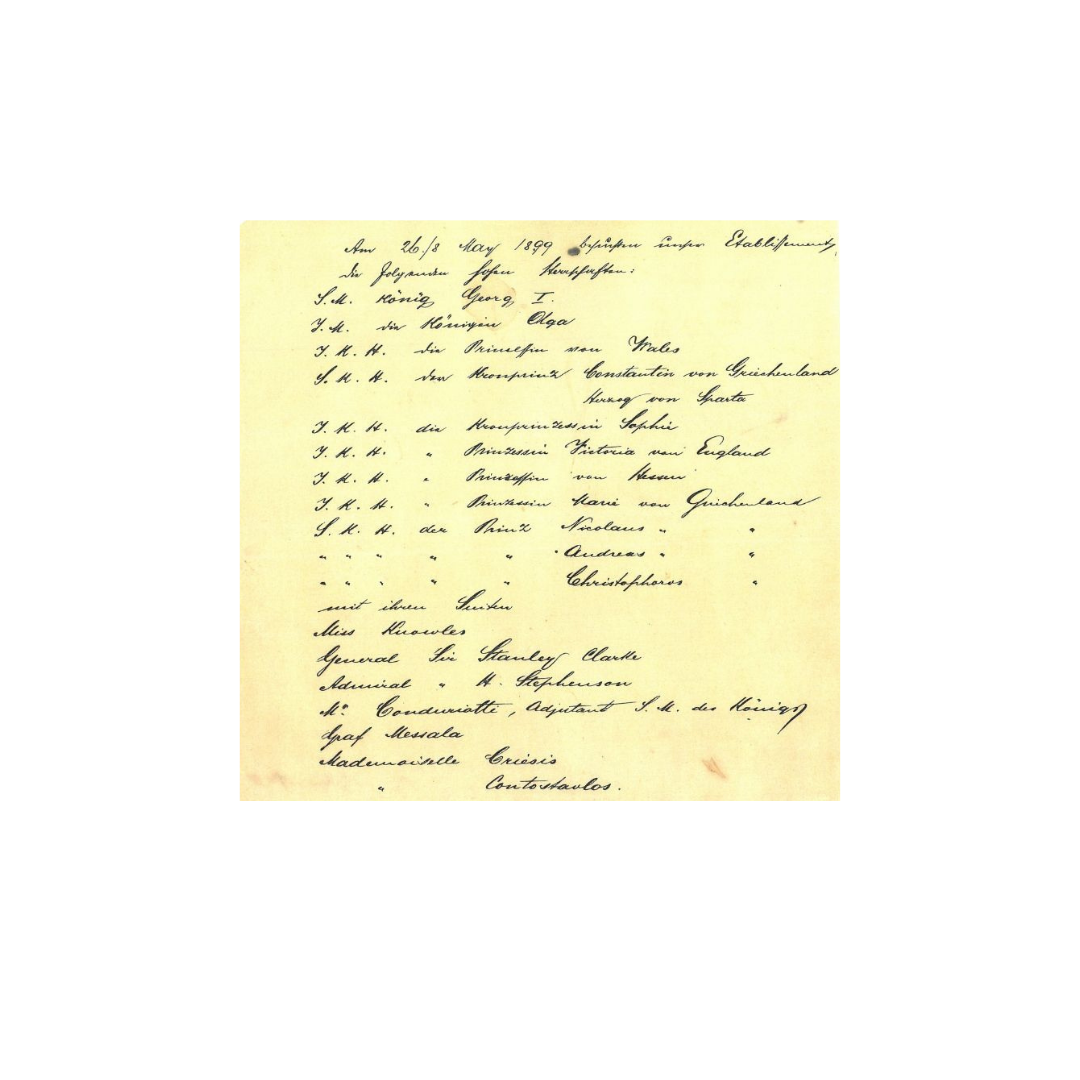 Am 26./8 May 1899 besuchten unser Etablissement,
die folgenden hohen Herrschaften:
S. M. König Georg I.
I. M. die Königin Olga
I. K. H. die Prinzessin von Wales
S. K. H. der Kronprinz Constantin von Griechenland
Herzog von Sparta
I. K. H. die Kronprinzessin Sophie
I. K. H. " Prinzessin Victoria von England
I. K. H. " Prinzessin von Hessen
I. K. H. " Prinzessin Marie von Griechenland
S. K. H. der Prinz Nicolaus " "
" " " " " Andreas " "
" " " " " Christophoros "
mit ihren Suiten
Miss Knowles
General Sir Stanley Clarke
Admiral " H. Stephenson
Mr. Conduriotte, Adjutant S. M. des Königs
Graf Messala
Mademoiselle Criesis
" Contostavlos.